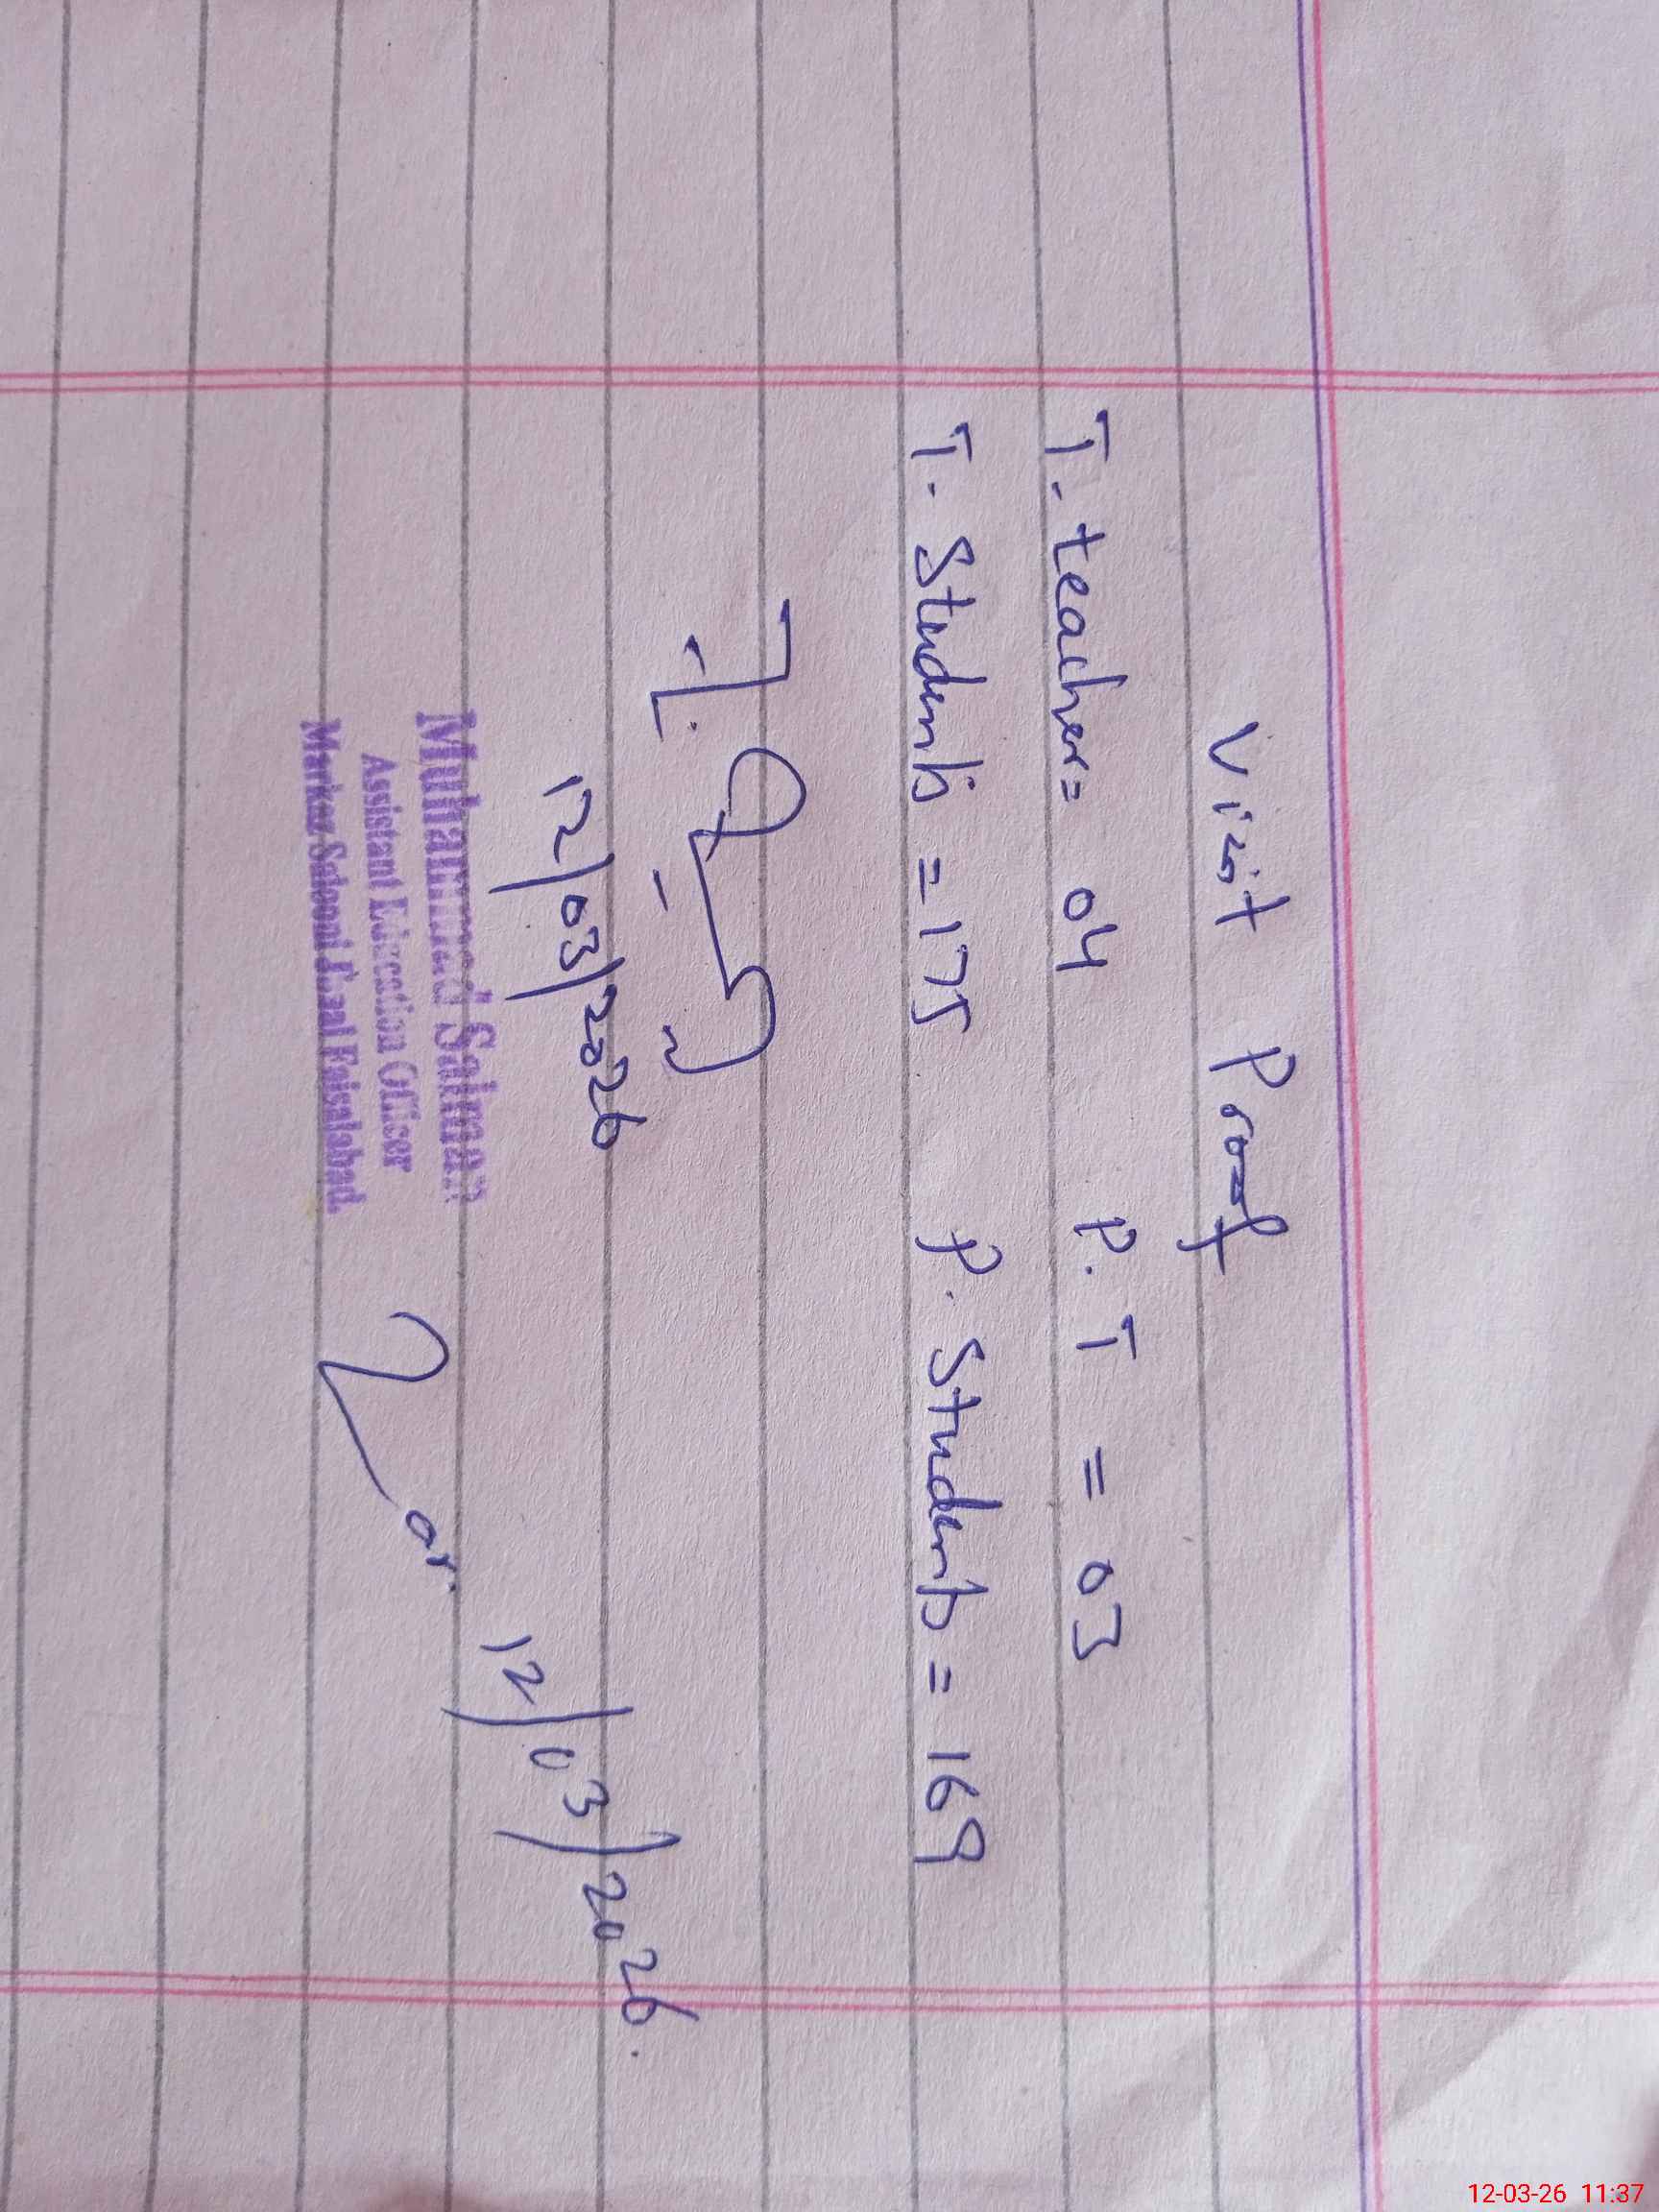 Visit Proof
T. teacher = 04 P. T = 03
T. Students = 175 P. Students = 169
12/03/2026
12/03/2026.
Muhammad Salman
Assistant Education Officer
Markaz Saleoni Jhal Faisalabad.
12-03-26 11:37